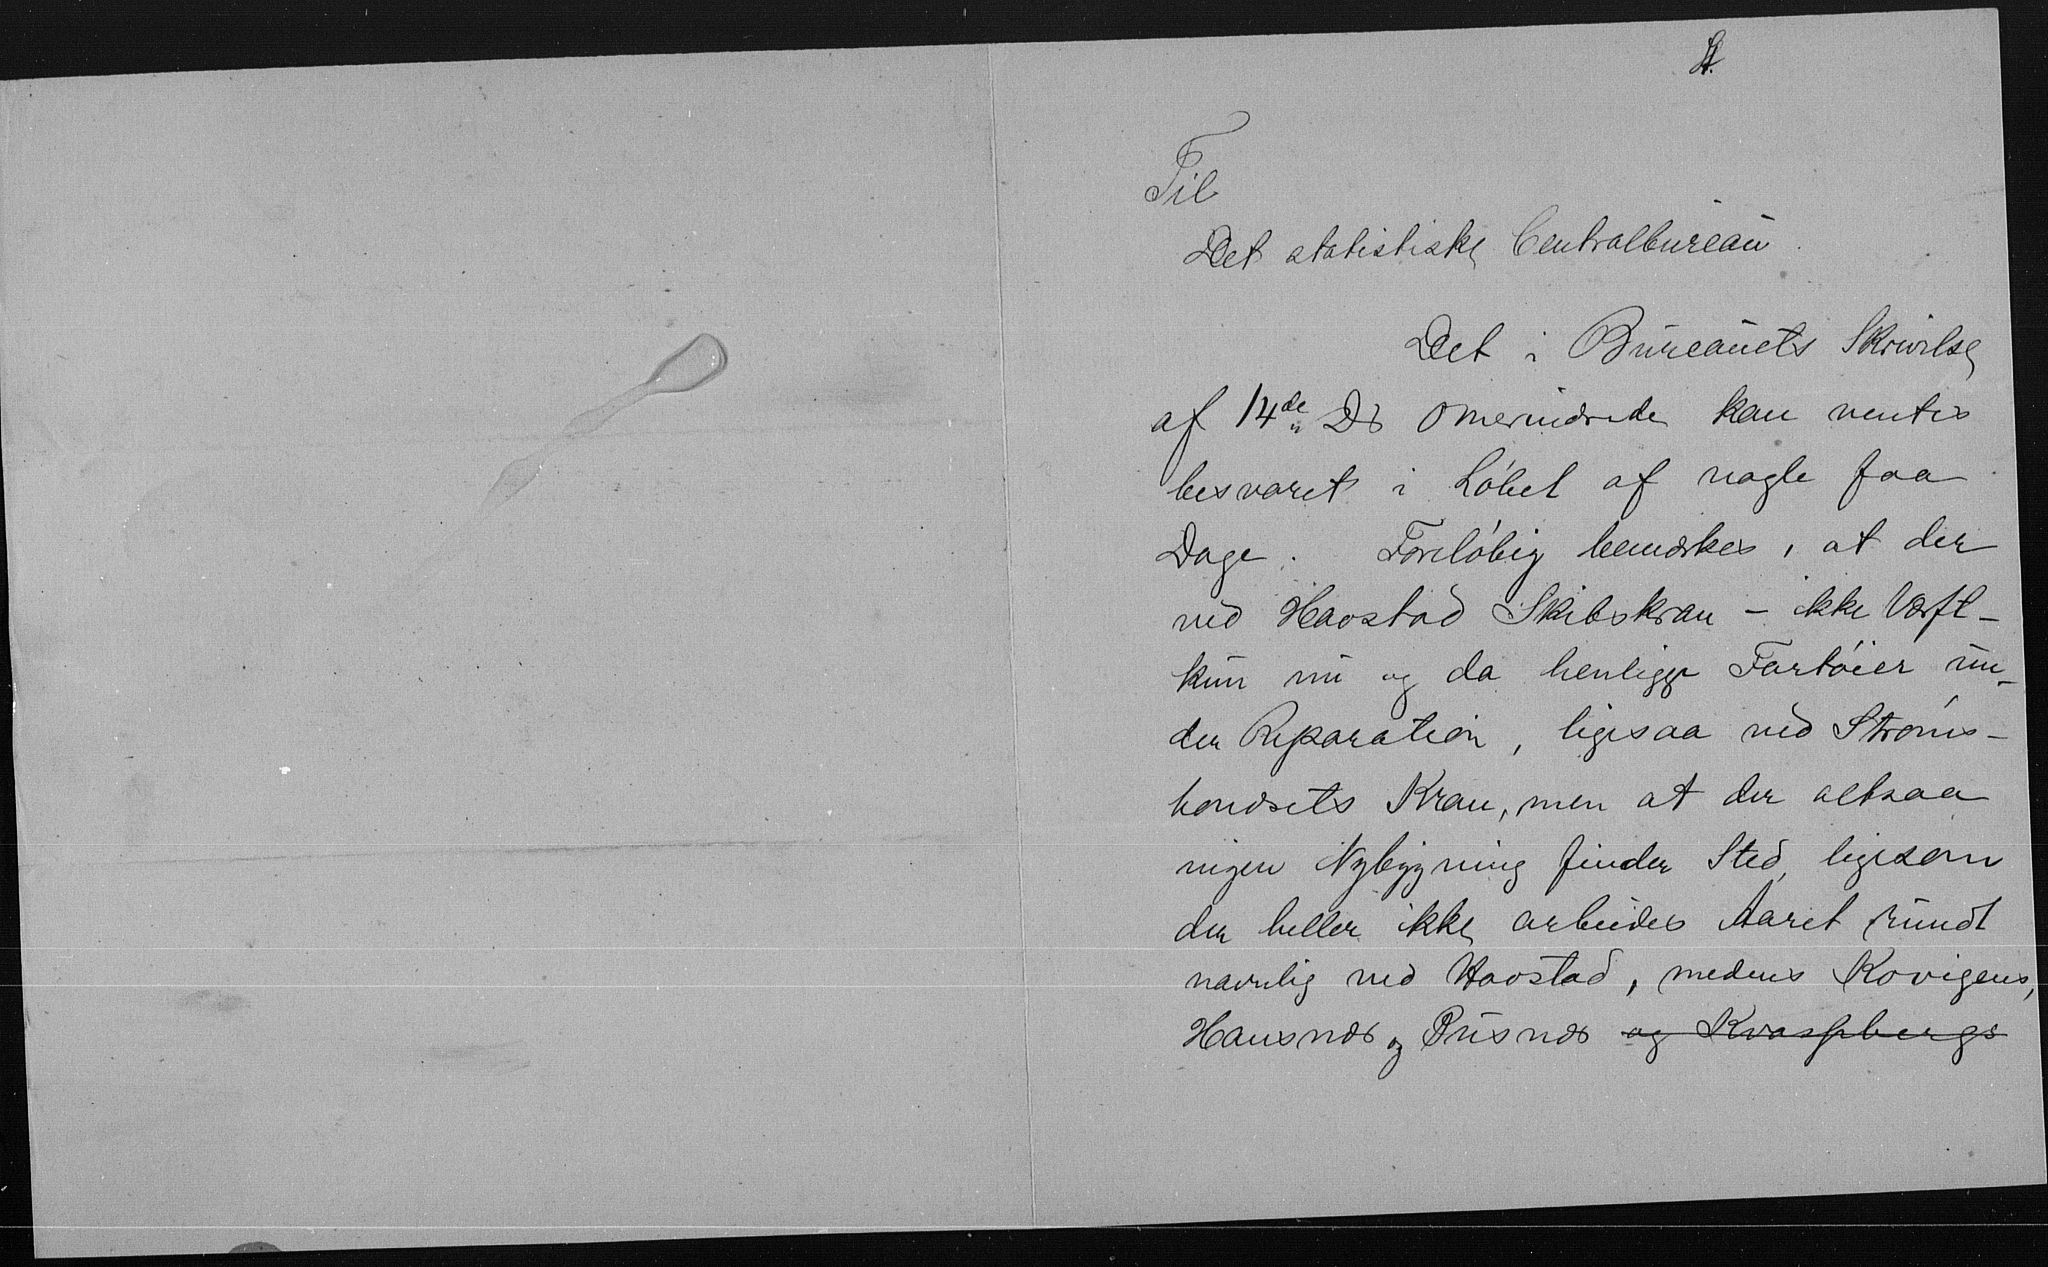 Til
Det statistiske Centralbureau.
Det i Bureauets Skrivelse
af 14de Ds omerindrede kan ventes
besvaret i Løbet af nogle faa
Dage. Foreløbig bemærkes, at der
ved Havstad Skibskran - ikke Værft -
kun nu og da henligger Fartøier un-
der Reparation, ligesaa ved Strøms-
bondsets Kran, men at der altsaa
ingen Nybygning finder Sted, ligesom
der heller ikke arbeides Aaret rundt
navnlig ved Havstad, medens Kovigens,
Hausnæs og Pusnæs og